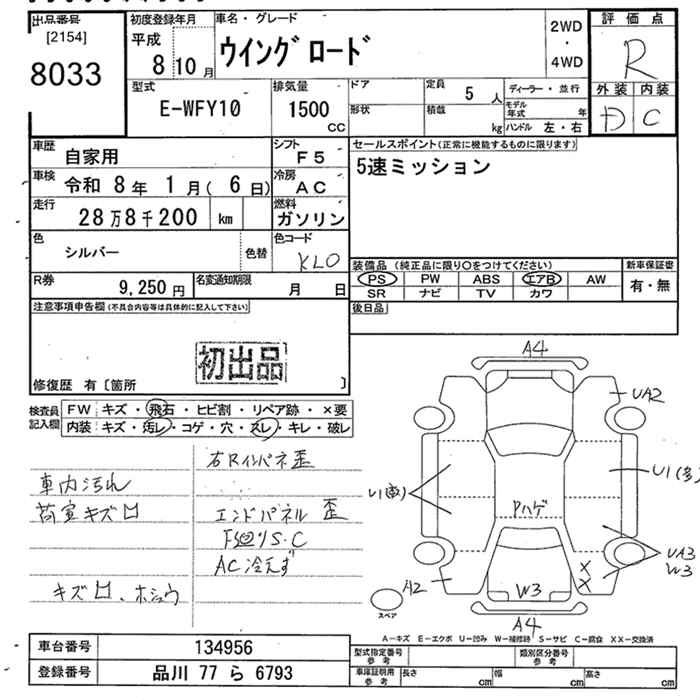 出品番号 初度登録年月 車名・グレード 2WD ・ 4WD 評価点
[2154] 平成 ウイングロード R
8033 8年10月
外装 内装
型式 排気量 ドア 定員 5人 ディーラー・並行 D C
E-WFY10 1500 CC 形状 積載 kg モデル年式 年
ハンドル 左・右
車歴 自家用 シフト F5 セールスポイント(正常に機能するものに限ります)
車検 令和 8年 1月(6日) 冷房 AC 5速ミッション
走行 28万8千200 km 燃料 ガソリン
色 シルバー 色替 色コード KL0
装備品(純正品に限り○をつけてください) 新車保証書
R券 9,250円 名変通知期限 月 日 PS PW ABS エアB AW 有・無
SR ナビ TV カワ
注意事項申告欄(不具合内容等は具体的に記入して下さい) 後日品
初出品
修復歴 有〔箇所 〕
検査員記入欄 FW キズ・飛石・ヒビ割・リペア跡・×要
内装 キズ・汚レ・コゲ・穴・スレ・キレ・破レ
右Rインパネ歪
車内汚れ
荷室キズ凹 エンドパネル歪
F廻りS.C
AC冷えず
キズ凹、ホシュウ
A4
UA2
U1(多)
Pハゲ
UA3
W3
A2
W3
A4
スペア
A-キズ E-エクボ U-凹み W-補修跡 S-サビ C-腐食 XX-交換済
車台番号 134956 型式指定番号 参考 類別区分番号 参考
登録番号 品川 77 ら 6793 車庫証明用 参考 長さ cm 幅 cm 高さ cm